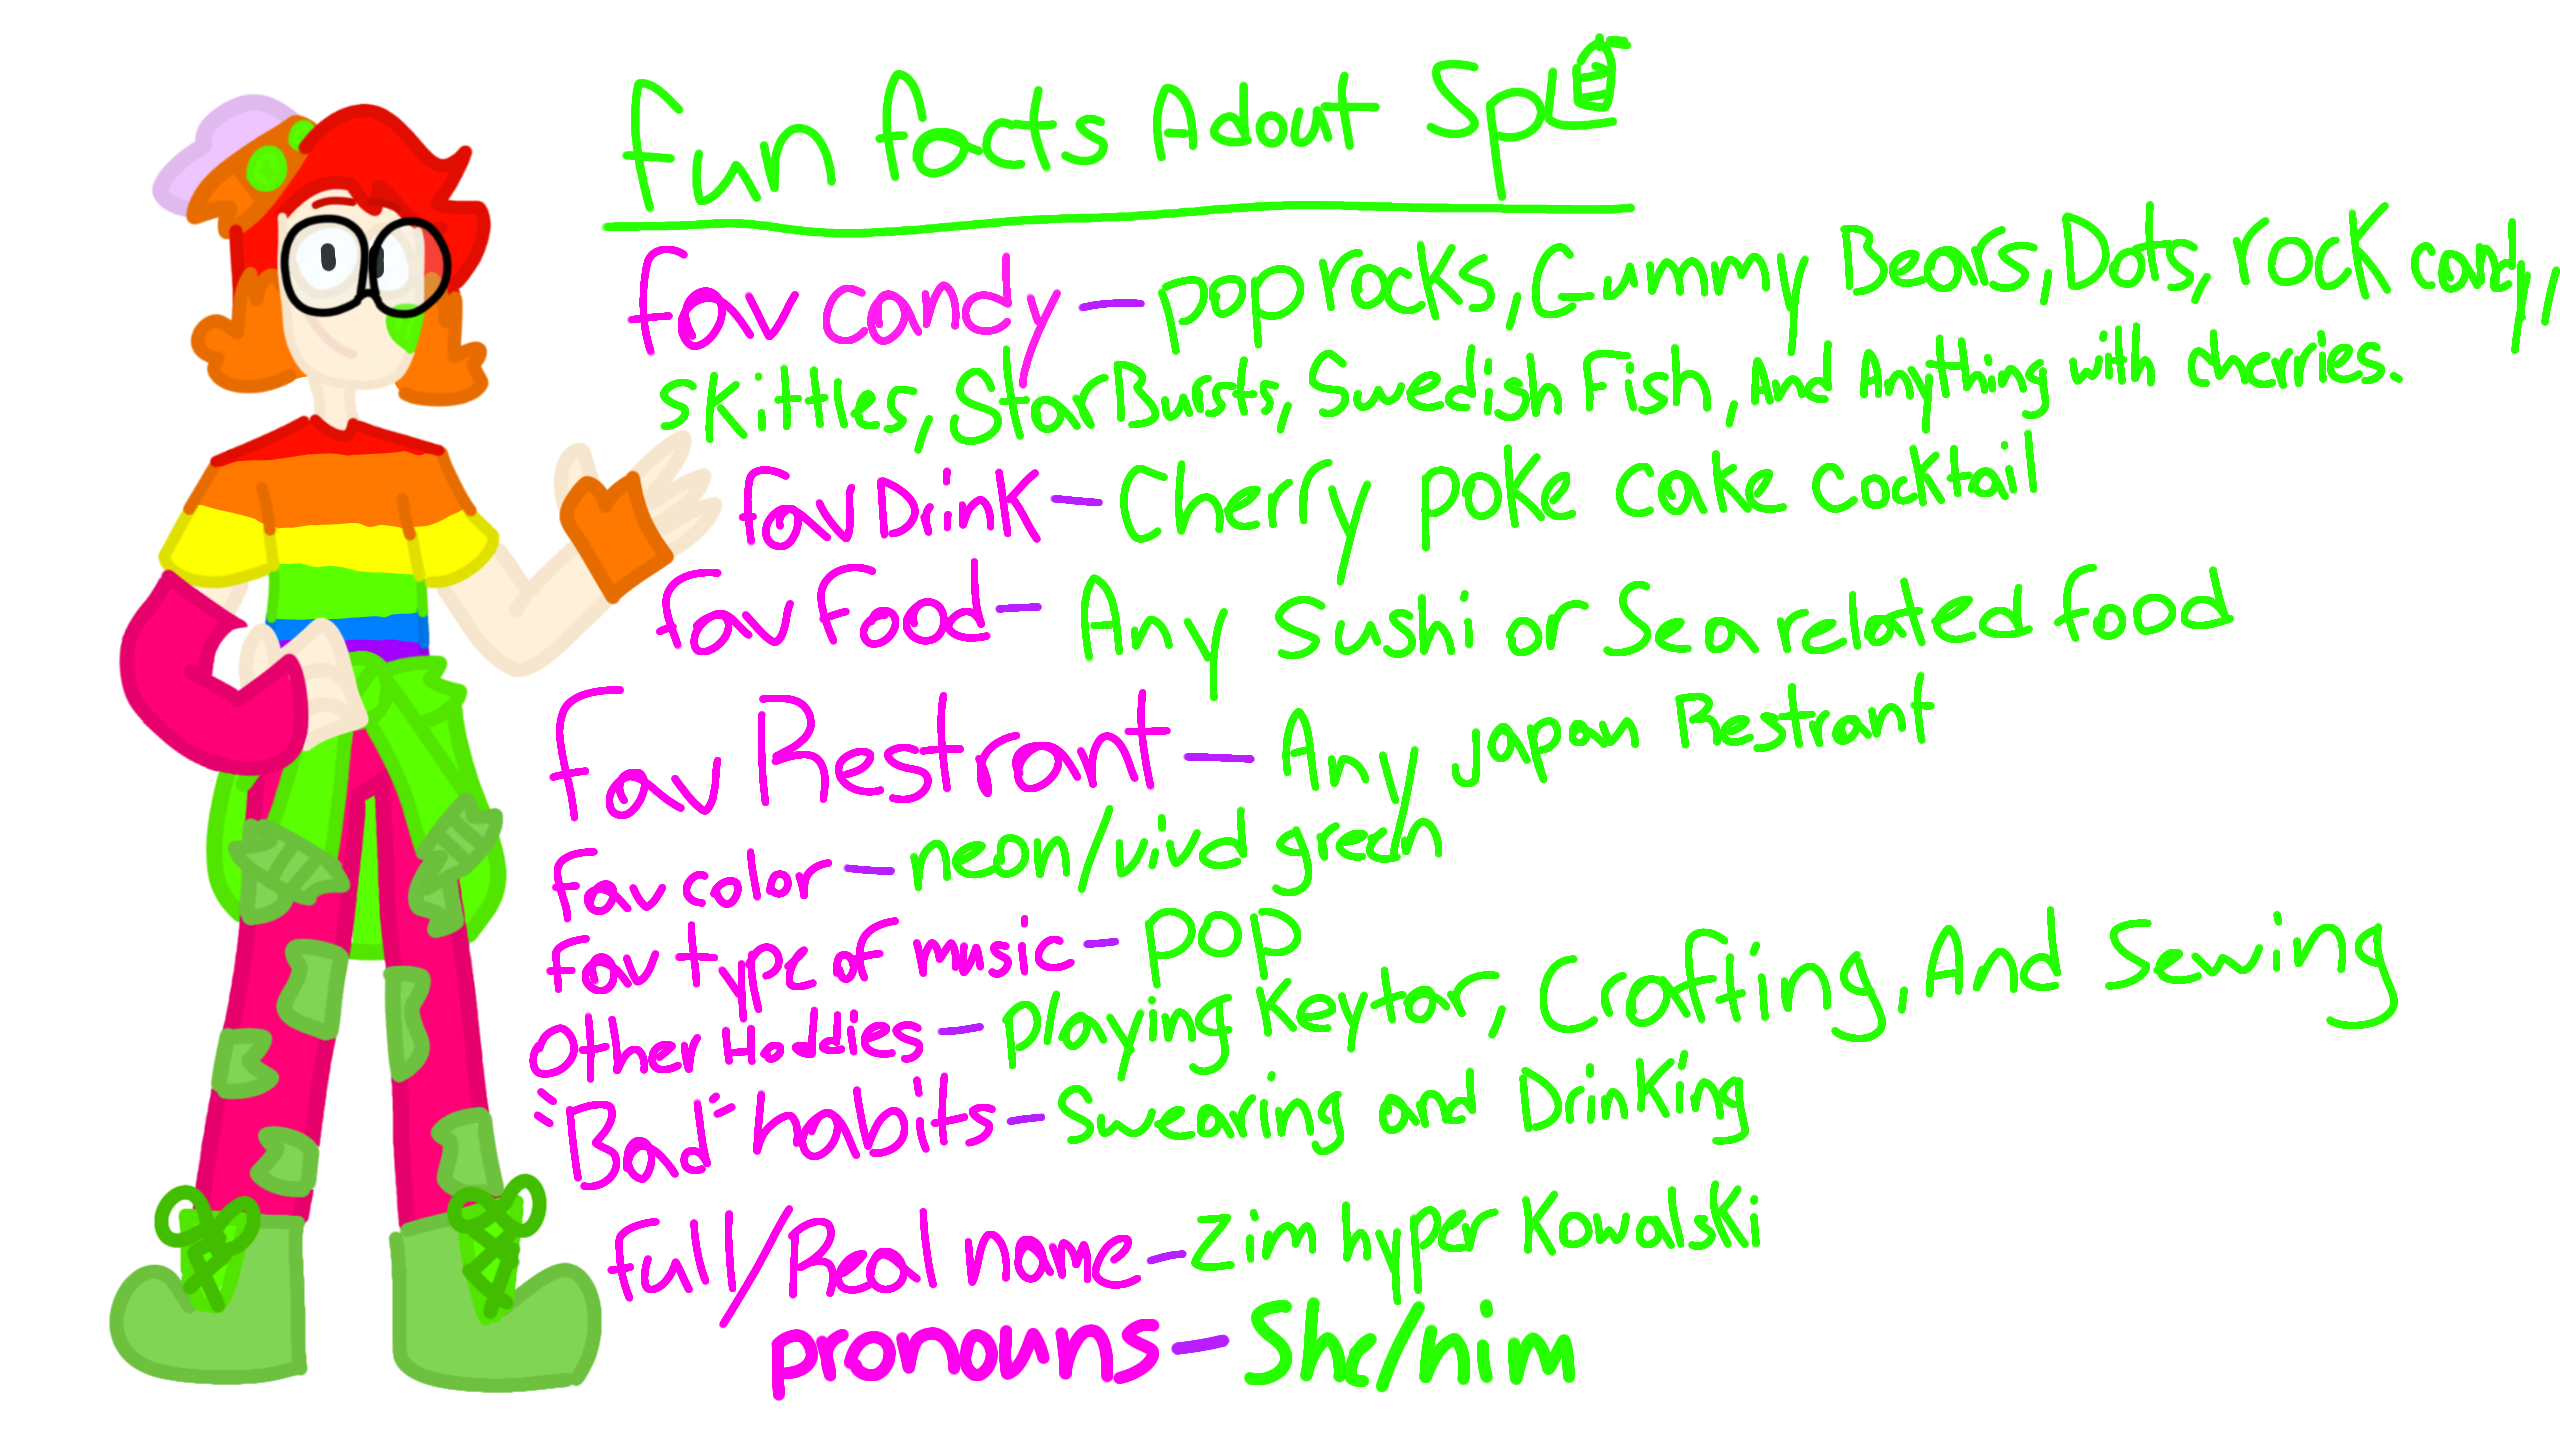 Fun facts Adout Spl
fav candy - pop rocks, Gummy Bears, Dots, rock candy,
skittles, StarBursts, Swedish Fish, And Anything with cherries.
fav Drink - Cherry poke cake cocktail
fav food - Any Sushi or Sea related food
fav Restrant - Any japan Restrant
fav color - neon/vivd green
fav type of music - pop
Other Hoddies - playing Keytar, Crafting, And Sewing
"Bad" habits - Swearing and Drinking
full/Real name - Zim hyper Kowalski
pronouns - She/him